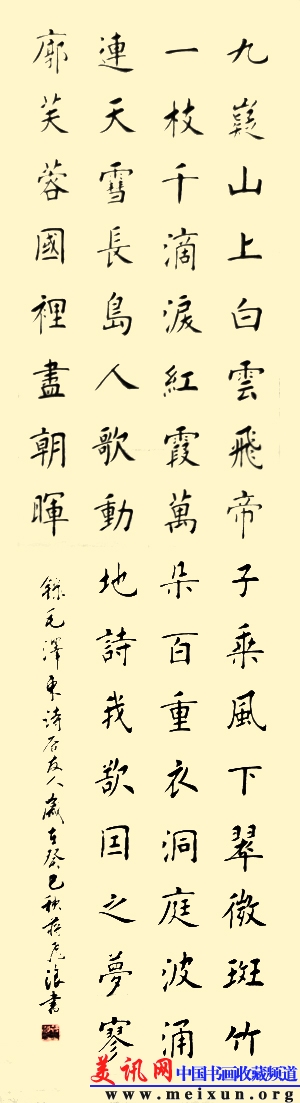 九嶷山上白雲飛帝子乘風下翠微斑竹
一枝千滴淚紅霞萬朵百重衣洞庭波涌
連天雪長島人歌動地詩我欲囙之夢寥
廓芙蓉國裡盡朝暉
錄毛澤東诗答友人歲在癸巳秋書
美讯网 中国书画收藏频道
www.meixun.org